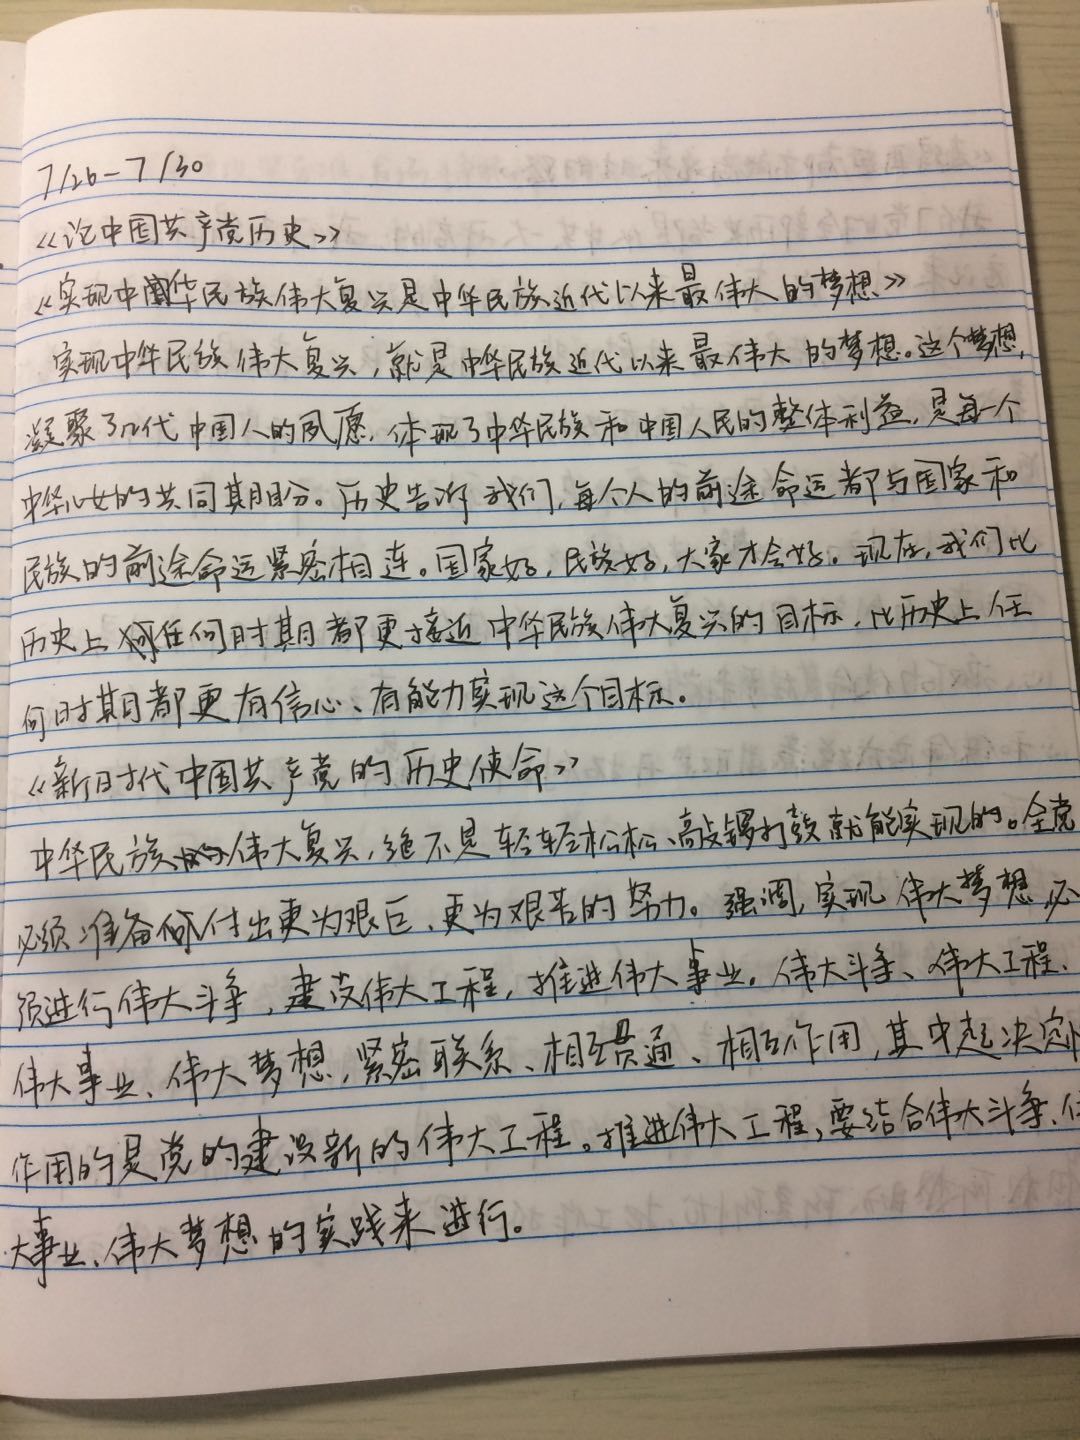 7/26-7/30
《论中国共产党历史》
《实现中华民族伟大复兴是中华民族近代以来最伟大的梦想》
实现中华民族伟大复兴,就是中华民族近代以来最伟大的梦想。这个梦想,
凝聚了几代中国人的夙愿,体现了中华民族和中国人民的整体利益,是每一个
中华儿女的共同期盼。历史告诉我们,每个人的前途命运都与国家和
民族的前途命运紧密相连。国家好,民族好,大家才会好。现在,我们比
历史上任何时期都更接近中华民族伟大复兴的目标,比历史上任
何时期都更有信心、有能力实现这个目标。
《新时代中国共产党的历史使命》
中华民族伟大复兴,绝不是轻轻松松、敲锣打鼓就能实现的。全党
必须准备付出更为艰巨、更为艰苦的努力。强调,实现伟大梦想,必
须进行伟大斗争,建设伟大工程,推进伟大事业。伟大斗争、伟大工程、
伟大事业、伟大梦想,紧密联系、相互贯通、相互作用,其中起决定性
作用的是党的建设新的伟大工程。推进伟大工程,要结合伟大斗争、伟
大事业、伟大梦想的实践来进行。